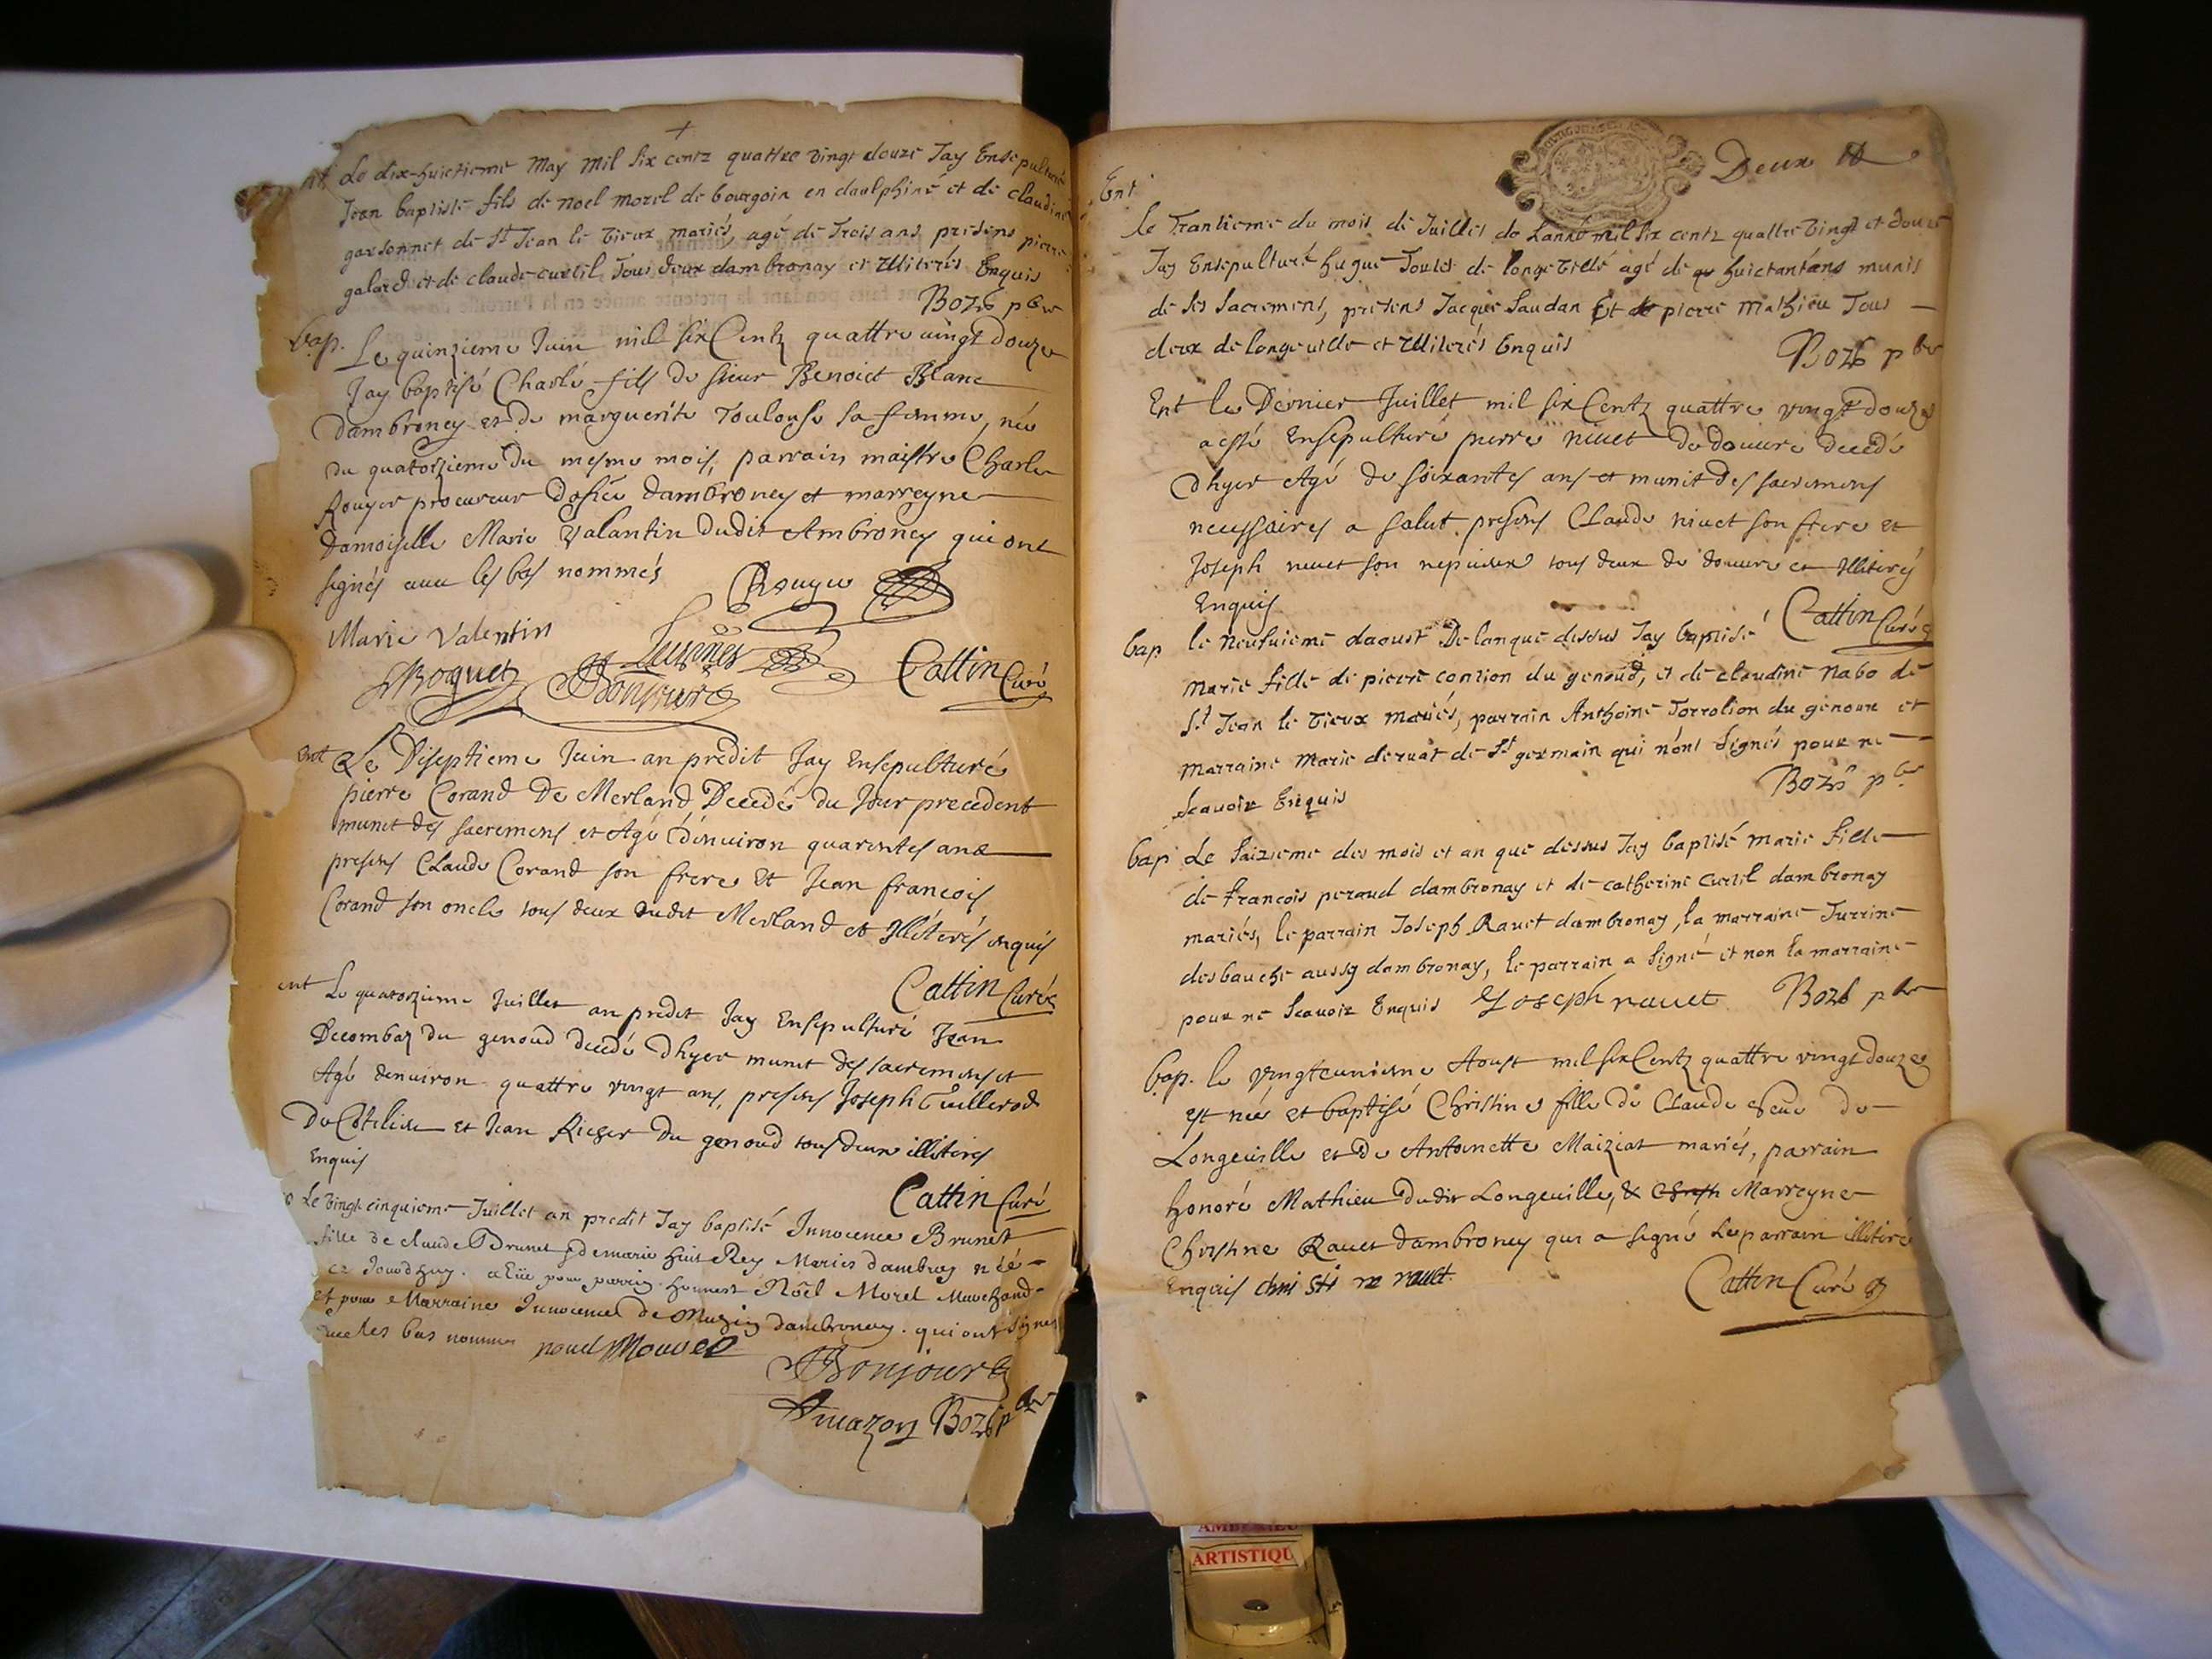 Le dix-huictieme May mil six centz quattre vingt douze Jay Ensepulturé
Jean baptiste fils de noel morel de bourgoin en daulphiné et de claudine
garsonnet de St Jean le vieux mariés, agé de Trois ans, presens pierre
galard et de claude curtil Tous deux dambronay et Illiterés Enquis
Bozo pbr
bap. Le quinzieme Juin mil six Centz quattre vingt douze
Jay baptisé Charle fils de sieur Benoict Blanc
Dambroney et de marguerite Toulouse sa femme, née
du quatorzieme du mesme mois, parrain maistre Charle
Rouyer procureur doffice dambroney et marreyne
Damoiselle Marie Valantin dudit Ambroney qui ont
signés avec les bas nommés
Rouyer
Marie Valentin
Roguet
Bonjour
Cattin Curé
ent Le Diseptieme Juin an predit Jay Ensepulturé
pierre Corand De Merland Decedé du Jour precedent
munit des sacremens et Agé denuiron quarentes ans
presens Claude Corand son frere Et Jean francois
Corand son oncle tous deux dudit Merland et Illiterés enquis
Cattin Curé
ent Le quatorzieme Juillet an predit Jay Ensepulturé Jean
Decombaz du genoud decedé dhyer munit des sacremens et
Agé denuiron quattre vingt ans, presens Joseph
et Jean du genoud tous deux illiteres
Enquis
Cattin Curé
Le vingt cinquieme Juillet an predit Jay baptisé Innocence Brunet
fille de claude Brunet et de marie Rey Mariés dambroney
ce Jourdhuy. a Eüe pour parrin honnest Nöel Morel Marchand
et pour Marraine Innocence de Mazin dambroney. qui ont signés
les bas nommes
Bonjour
Bozo pbr
Deux
Ent
le Trantieme du mois de Juillet de Lanné mil six centz quattre vingt et douze
Jay Ensepulturé hugue Toules de longeville agé de huictantans munis
de ses sacremens, presens Jacque Saudan Et pierre Mathieu Tous
deux de longeville et Illiterés Enquis
Bozo pbr
Ent le Dernier Juillet mil six Centz quattre vingt douze
a esté Ensepulturé pierre niuet de douure decedé
dhyer Agé de soixantes ans et munit des sacremens
necessaires a salut presens Claude niuet son frere et
Joseph niuet son nepueux tous deux de douure et Illiterés
Enquis
Cattin Curé
bap le neufuieme daoust De lan que dessus Jay baptisé
Marie fille de pierre contion du genoud, et de claudine nabo de
St Jean le vieux mariés, parrain Anthoine Torrolion du genoux et
marraine Marie deruat de St germain qui n'ont signés pour ne
scauoir Enquis
Bozo pbr
bap Le saizieme des mois et an que dessus Jay baptisé marie fille
de francois peraud dambronay et de catherine curtil dambronay
mariés, le parrain Joseph Rauet dambronay, la marraine Turrine
desbauche aussy dambronay, le parrain a signé et non la marraine
pour ne scauoir Enquis Yoseph rauet Bozo pbr
bap. le vingteunieme Aoust mil six Centz quattre vingt douze
est née et baptisé Christine fille de Claude de
Longeuille et de Antoinette Maiziat mariés, parrain
honoré Mathieu dudit Longeuille, & Marreyne
Christine Rauet dambroney qui a signé Le parrain illitiré
Enquis christi ne rauet.
Cattin Curé
ARTISTIQU